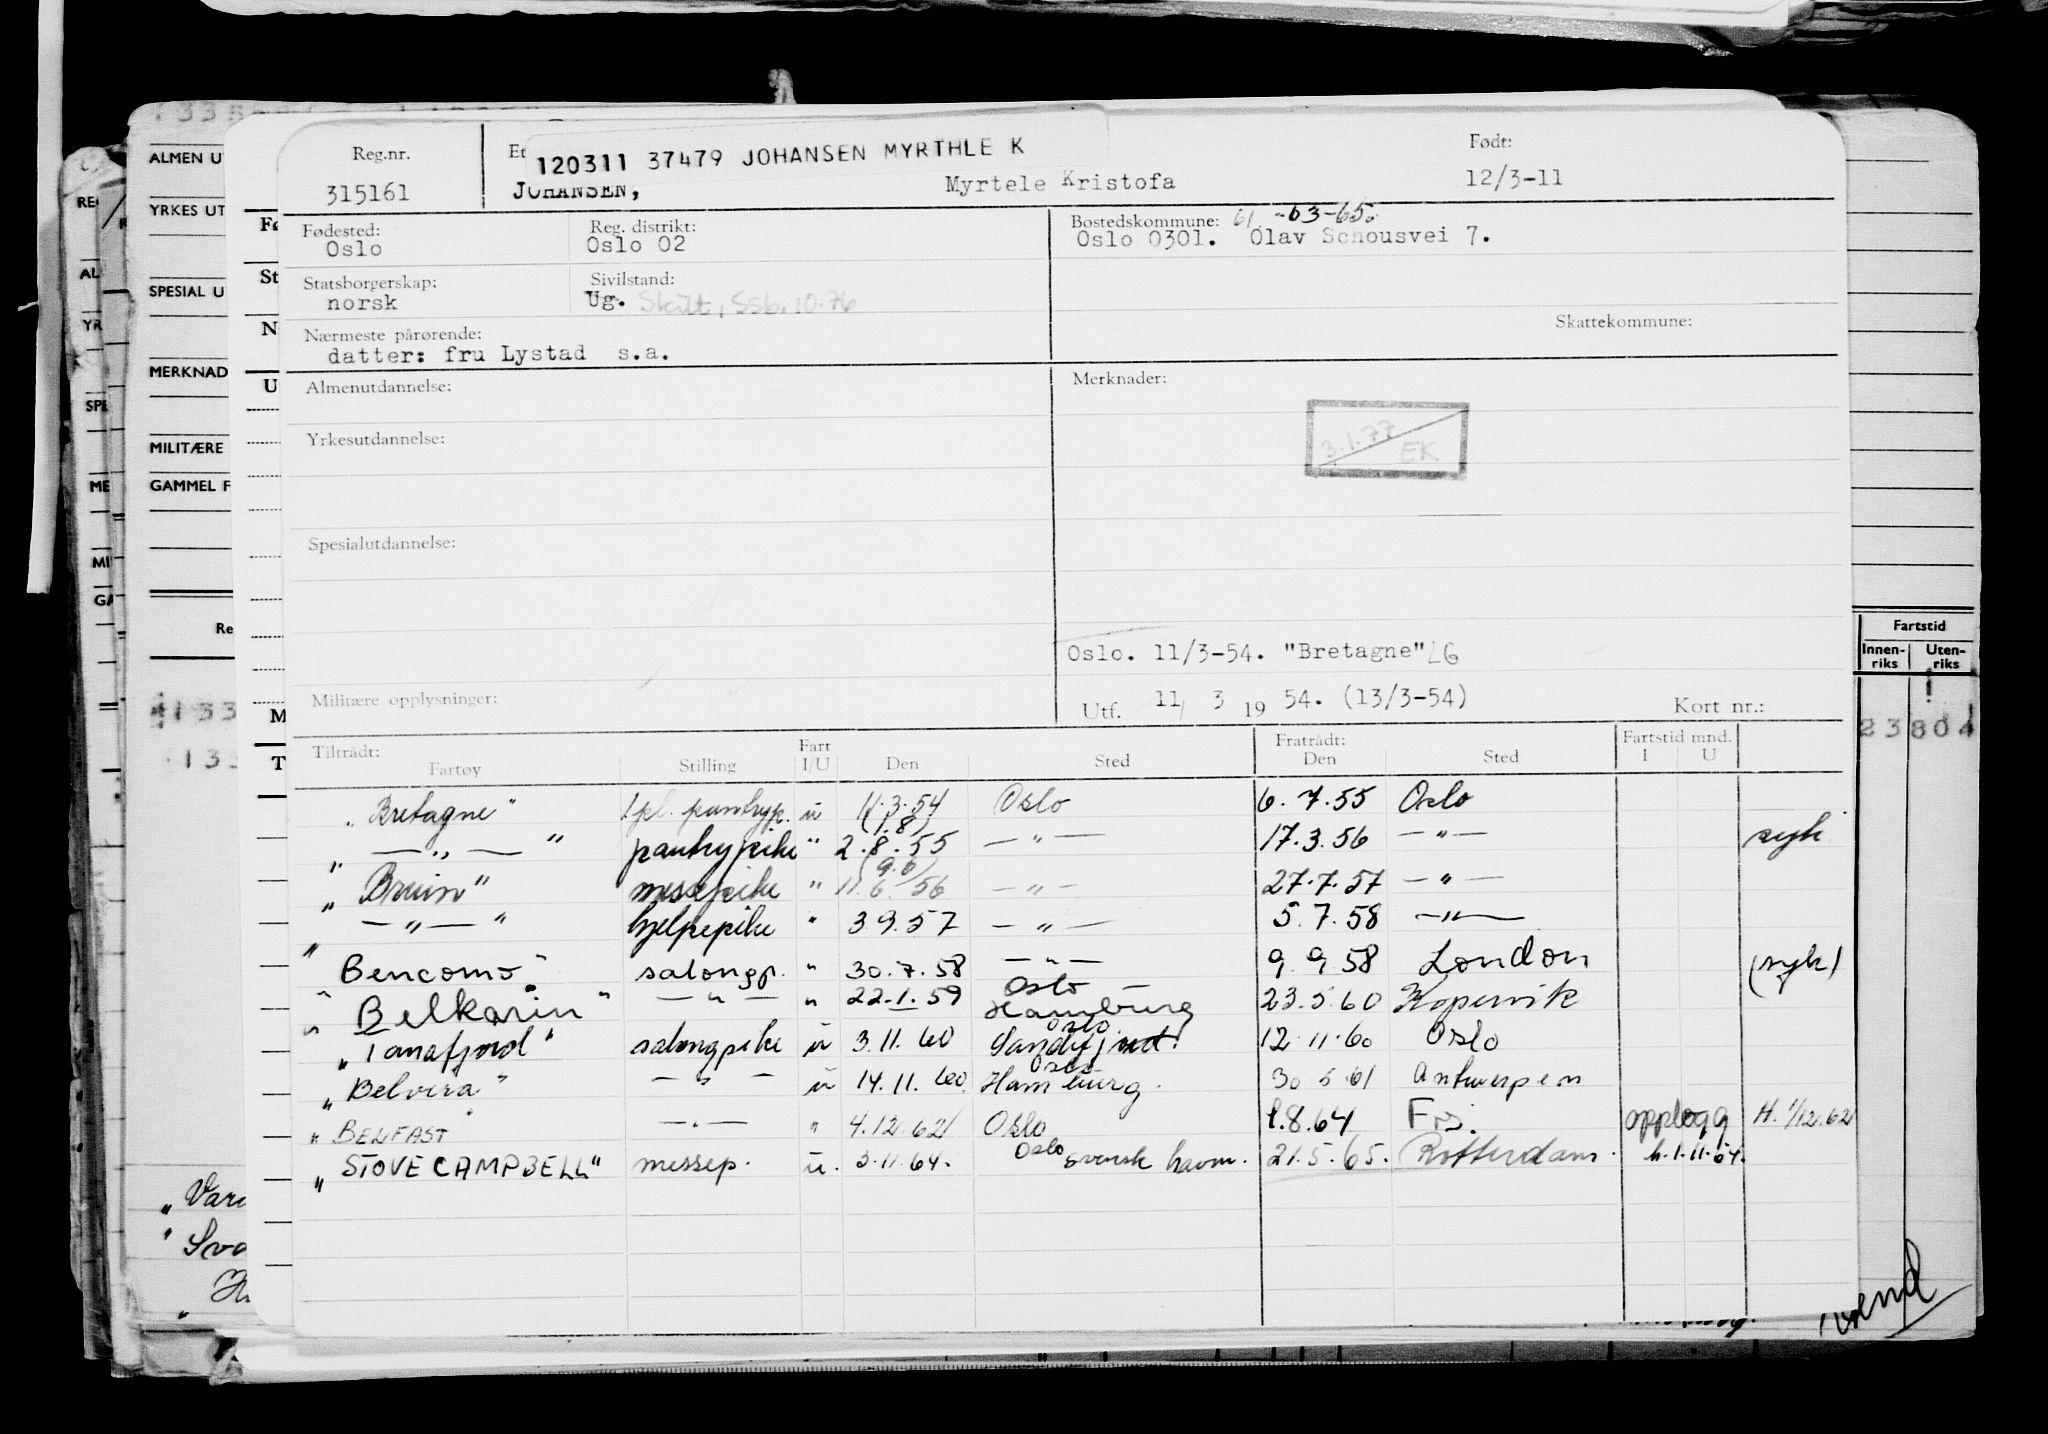 Reg.nr. Et Født:
120311 37479 JOHANSEN MYRTHLE K
315161 JOHANSEN, Myrtele Kristofa 12/3-11
Fødested: Reg. distrikt: Bostedskommune: 61 -63-65.
Oslo Oslo 02 Oslo 0301. Olav Schousvei 7.
Statsborgerskap: Sivilstand:
norsk Ug. Skilt, SSb. 10.76
Nærmeste pårørende: Skattekommune:
datter: fru Lystad s.a.
Almenutdannelse: Merknader:
3.1.77 EK
Yrkesutdannelse:
Spesialutdannelse:
Oslo. 11/3-54. "Bretagne" LG
Militære opplysninger: Utf. 11, 3 19 54. (13/3-54) Kort nr.:
Tiltrådt: Fart Fratrådt: Fartstid mnd.
Fartøy Stilling I/U Den Sted Den Sted I U
"Bretagne" 1pl. pantryp. u 11.3.54 Oslo 6.7.55 Oslo
(1.8)
" — " — " pantrypike " 2.8.55 — " — 17.3.56 — " — syk
(9.6)
"Bruin" messepike " 11.6.56 — " — 27.7.57 — " —
" — " — " hjelpepike " 3 9.57 — " — 5.7.58 — " —
"Bencomo" salongp. " 30.7.58 — " — 9.9.58 London (syk)
Oslo
"Belkarin" — " — " 22.1.59 Hamburg 23.5.60 Kopervik
Oslo
"Tanafjord" salongpike u 3.11.60 Sandefjord. 12.11.60 Oslo
Oslo
"Belvera" — " — u 14.11.60 Hamburg. 30 5 61 Antwerpen
"BELFAST — " — " 4.12.62 Oslo 1.8.64 opplogg H. 1/12.62
"STOVE CAMPBELL" messep. u. 3.11.64. Oslo svensk havn. 21.5.65. Rotterdam. h.1.11.64.
ALMEN UT
YRKES UT
SPESIAL U
MERKNAD
MILITÆRE
GAMMEL F
Re
Fartstid
Innen-riks Uten-riks
23804
4133
133
"Vare
" Sva
vend